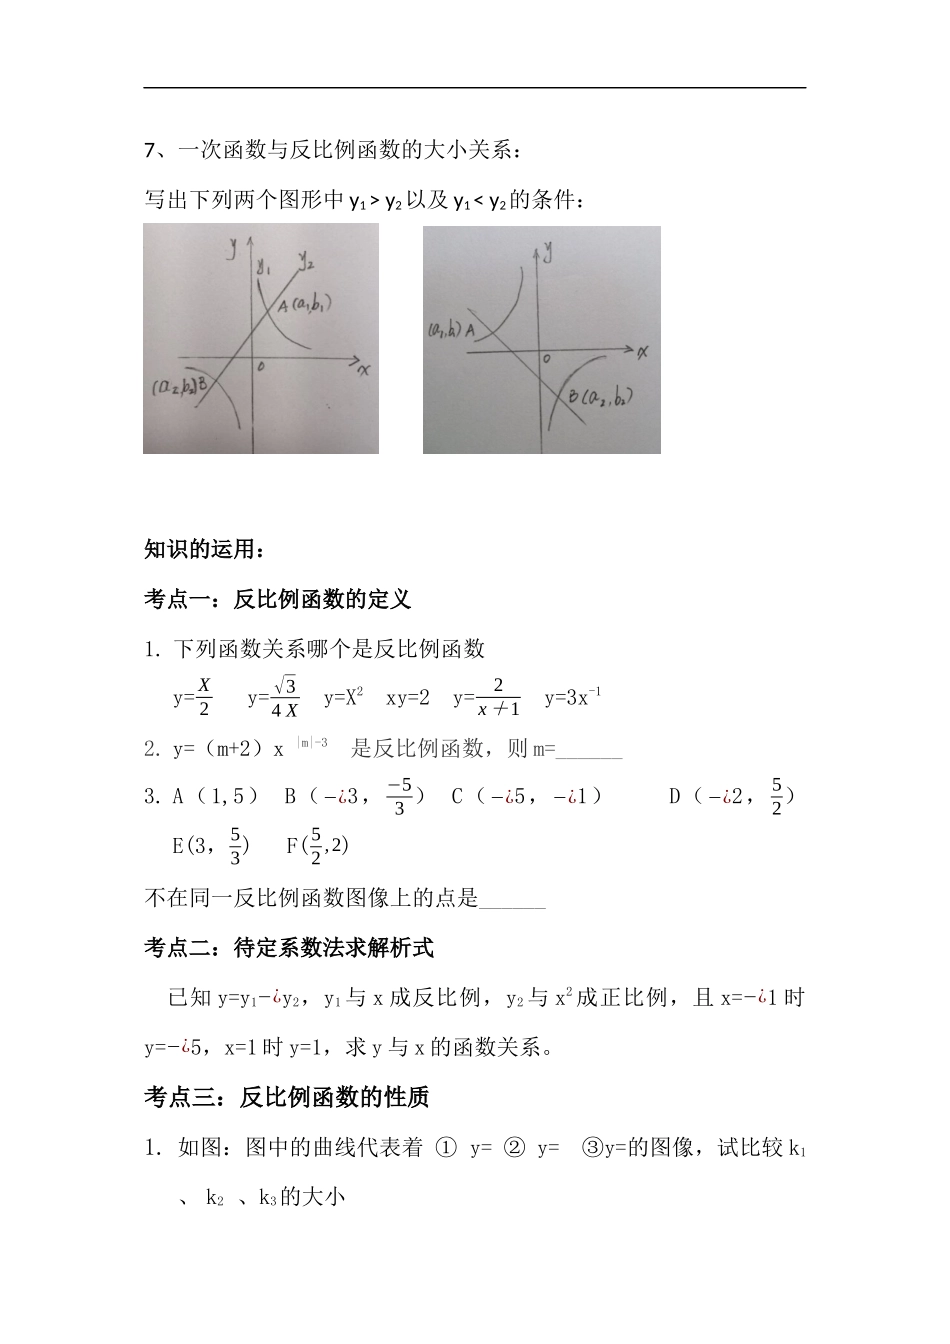 7、一次函数与反比例函数的大小关系：
写出下列两个图形中 y₁ > y₂ 以及 y₁ < y₂ 的条件：
y y₁ y₂
A(a₁,b₁)
0 x
(a₂,b₂)B
y
(a₁,b)A
0 x
B(a₂,b₂)
知识的运用：
考点一：反比例函数的定义
1. 下列函数关系哪个是反比例函数
y=X/2 y=√3/4X y=X² xy=2 y=2/x+1 y=3x⁻¹
2. y=（m+2）x |m|-3 是反比例函数，则 m=______
3. A（1,5） B（−¿3，−5/3） C（−¿5，−¿1） D（−¿2，5/2）
E(3，5/3) F(5/2,2)
不在同一反比例函数图像上的点是______
考点二：待定系数法求解析式
已知 y=y₁−¿y₂，y₁与 x 成反比例，y₂与 x²成正比例，且 x=−¿1 时
y=−¿5，x=1 时 y=1，求 y 与 x 的函数关系。
考点三：反比例函数的性质
1. 如图：图中的曲线代表着 ① y= ② y= ③y=的图像，试比较 k₁
、 k₂ 、k₃的大小